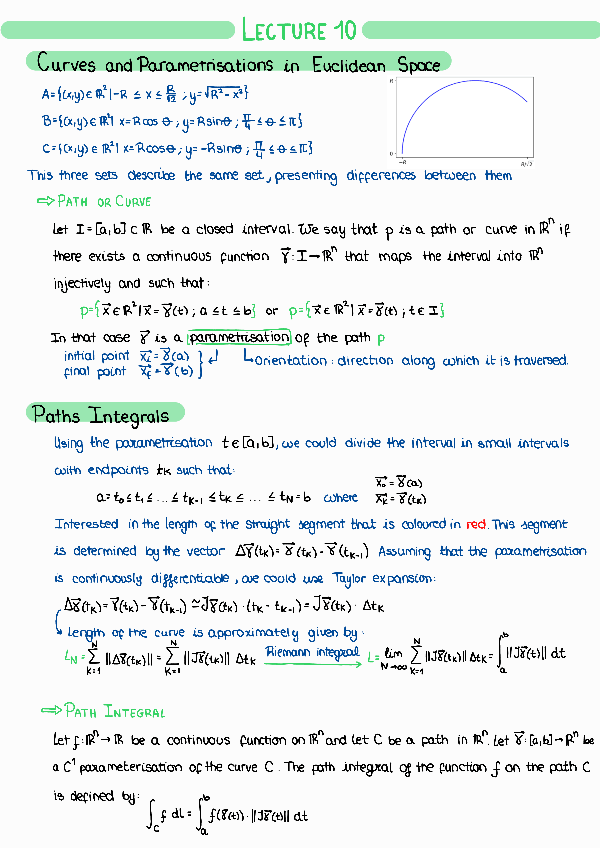 LECTURE 10
Curves and Parametrisations in Euclidean Space
A={(x,y)∈ℝ²|-R ≤ x ≤ R/√2 ; y=√(R²-x²)}
B={(x,y)∈ℝ²| x=Rcosθ ; y=Rsinθ ; π/4 ≤ θ ≤ π}
C={(x,y)∈ℝ²| x=Rcosθ ; y=-Rsinθ ; π/4 ≤ θ ≤ π}
R
0
-R
R/√2
This three sets describe the same set, presenting differences between them
⇒ PATH OR CURVE
Let I=[a,b]⊂ℝ be a closed interval. We say that p is a path or curve in ℝⁿ if
there exists a continuous function γ⃗: I→ℝⁿ that maps the interval into ℝⁿ
injectively and such that:
p={x⃗∈ℝ²|x⃗=γ⃗(t) ; a≤t≤b} or p={x⃗∈ℝ²|x⃗=γ⃗(t) ; t∈I}
In that case γ⃗ is a parametrisation of the path p
initial point x⃗i=γ⃗(a)
final point x⃗f=γ⃗(b)
Orientation: direction along which it is traversed.
Paths Integrals
Using the parametrisation t∈[a,b], we could divide the interval in small intervals
with endpoints tK such that:
a=t₀≤t₁≤ ... ≤tK-1 ≤tK ≤ ... ≤tN=b where x⃗₀=γ⃗(a) x⃗K=γ⃗(tK)
Interested in the length of the straight segment that is coloured in red. This segment
is determined by the vector Δγ⃗(tK)=γ⃗(tK)-γ⃗(tK-1) Assuming that the parametrisation
is continuously differentiable, we could use Taylor expansion:
Δγ⃗(tK)=γ⃗(tK)-γ⃗(tK-1) ≃Jγ⃗(tK)·(tK-tK-1)=Jγ⃗(tK)·ΔtK
Length of the curve is approximately given by:
LN=∑_{K=1}^{N} ||Δγ⃗(tK)||=∑_{K=1}^{N} ||Jγ⃗(tK)|| ΔtK Riemann integral L=lim_{N→∞} ∑_{K=1}^{N} ||Jγ⃗(tK)|| ΔtK=∫_a^b ||Jγ⃗(t)|| dt
⇒ PATH INTEGRAL
Let f:ℝⁿ→ℝ be a continuous function on ℝⁿ and let C be a path in ℝⁿ. Let γ⃗:[a,b]→ℝⁿ be
a C¹ parameterisation of the curve C. The path integral of the function f on the path C
is defined by:
∫_C f dL=∫_a^b f(γ⃗(t))·||Jγ⃗(t)|| dt